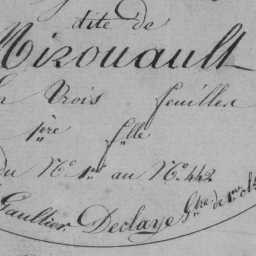 dite de
Mirouault
En Trois feuilles
1ère flle
du N° 1er au N° 442
Gaultier Declaye Gtre de 1ere cl